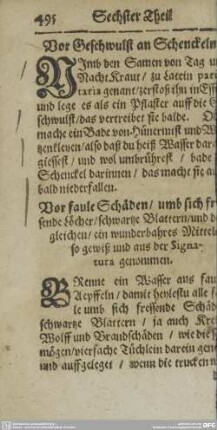 495 Sechster Theil
Vor Geschwulst an Schenckeln
NImb den Samen von Tag un
Nacht Kraut / zu Latein par
taria genant / zerstoß ihn in Essi
und lege es als ein Pflaster auff die G
schwulst / das vertreibet sie balde. O
mache ein Bade von Hünermist und W
tzenkleyen / also daß du heiß Wasser dara
giessest / und wol umbrührest / bade
Schenckel darinnen / das macht sie a
bald niederfallen.
Vor faule Schäden / umb sich fr
sende Löcher / schwartze Blattern / und d
gleichen / ein wunderbahres Mittel
so gewiß und aus der Signa-
tura genommen.
BRenne ein Wasser aus fau
Aepffeln / damit heylestu alle fa
le umb sich fressende Schäd
schwartze Blattern / ja auch Kre
Wolff und Brandschäden / wie die
mögen / vierfache Tüchlein darein gene
und auffgeleget / wenn die trucken